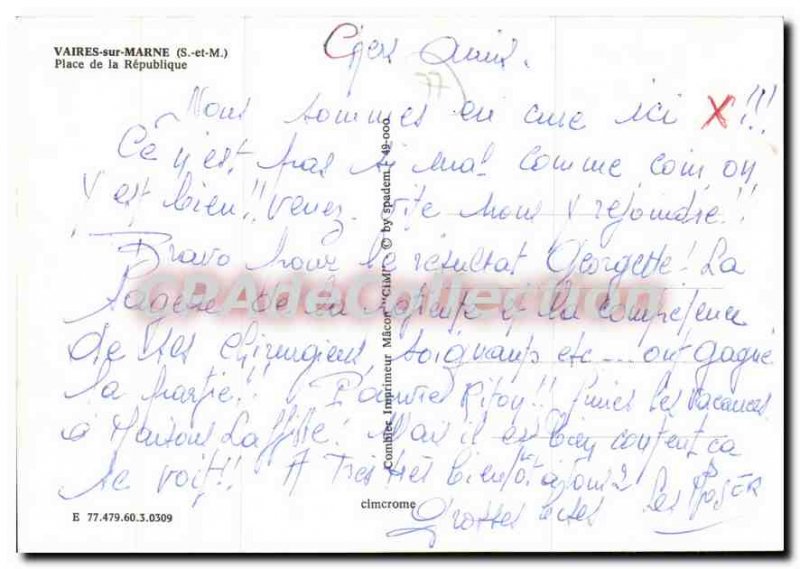 VAIRES-sur-MARNE (S.-et-M.)
Place de la République
Chers Amis.
77
Nous sommes en cure ici X!!!
Ce n'est pas si mal comme coin on
y est bien!! Venez vite nous y rejoindre!!
Bravo pour le résultat Georgette! La
sagesse de la patiente et la compétence
de ses chirurgiens soignants etc... ont gagné
la partie!! Pauvre!! finies les vacances
à Maisons Laffitte! Mais il est bien content ça
se voit!! A Très très bientôt
Grosses bises Les
CPAdeCollection
Combier Imprimeur Mâcon "CIM" © by spadem 49-000
cimcrome
E 77.479.60.3.0309